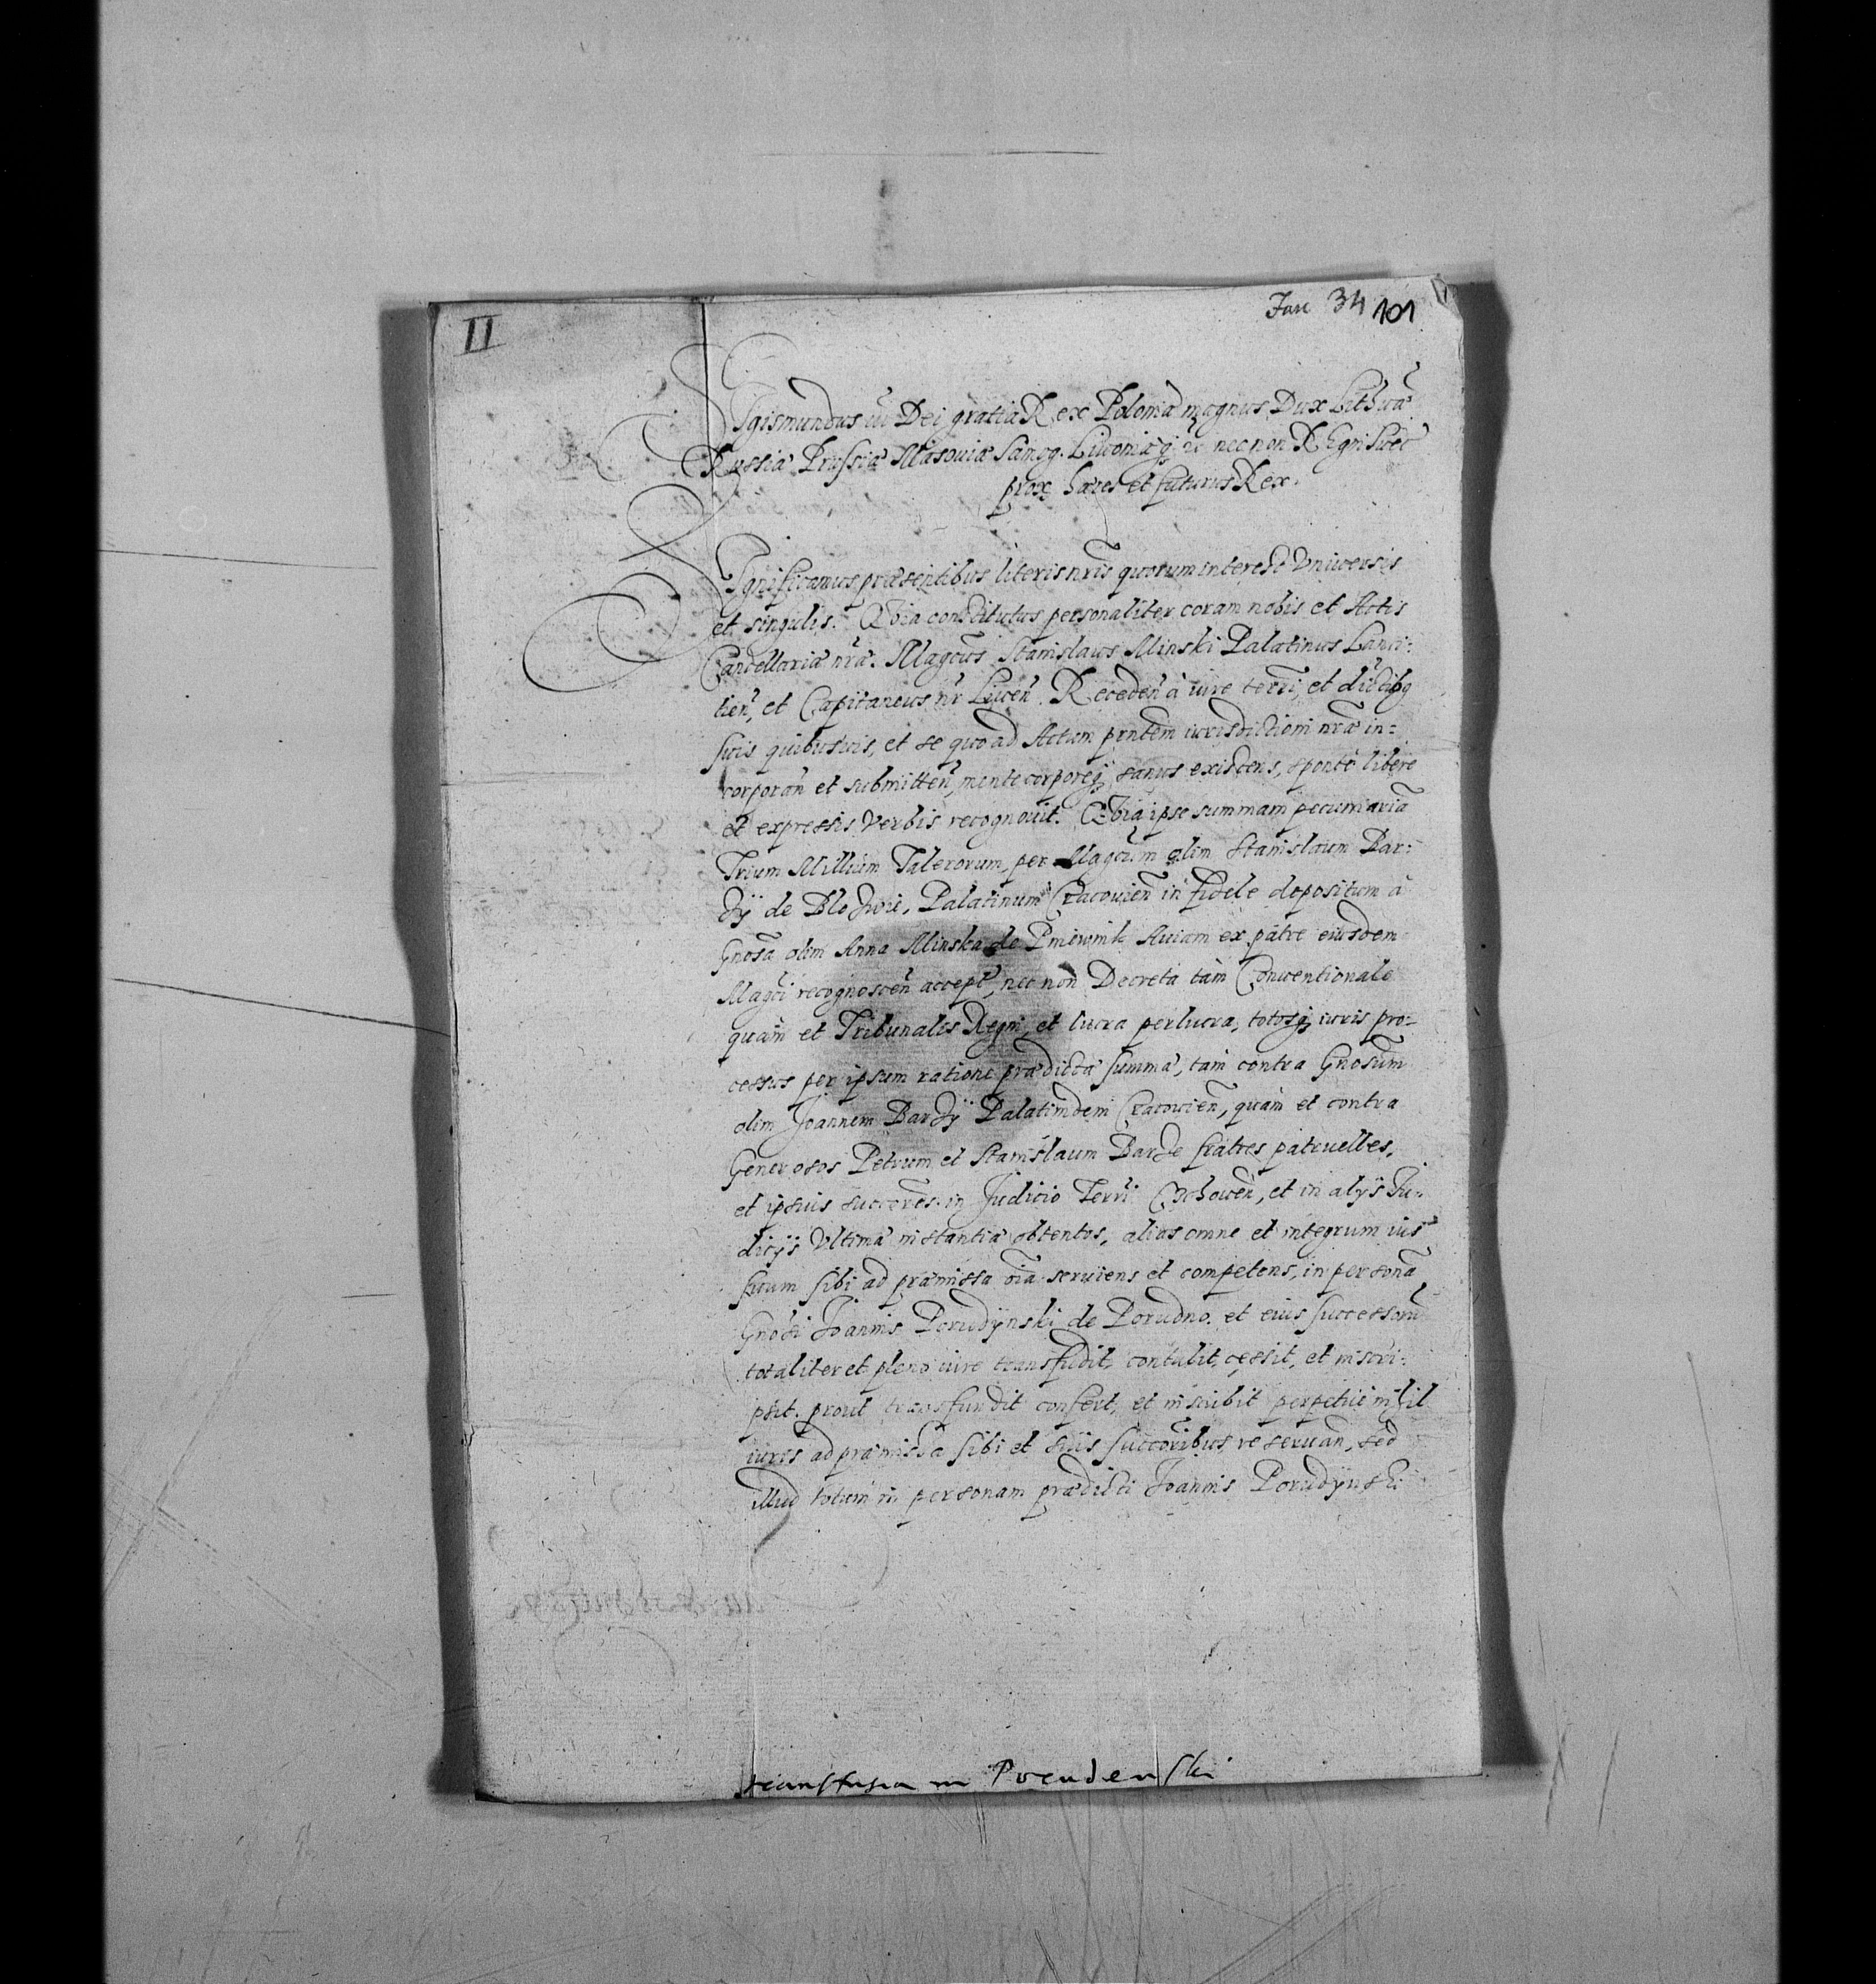 II
Fasc 34 101
Sigismundus iii Dei gratia Rex Poloniæ magnus Dux Lithuã
Russiæ Prussiæ Masouiæ Samog. Liuoniæq; ꝛc nec non REgni Suec
prox. hæres et futurus Rex.
Significamus præsentibus literis nr̃is quorum interest Vniuersis
et singulis. Quia constitutus personaliter coram nobis et Actis
Cancellariæ nr̃æ. Magcus Stanislaus Minski Palatinus Lanci:
cień, et Capitaneus nr̃ Liuen̄. Receden̄ à iure terri, et distibq
suis quibusuis, et se quo ad Actum pñtem iurisdictioni nr̃æ in:
corporan̄ et submitten̄, mente corporeq; sanus existens, sponte libere
et expressis Verbis recognouit. Quia ipse summam pecuniariã
Trium Millium Talerorum, per Magcum olim Stanislaum Bar:
zÿ de Blozwie, Palatinum Cracouien̄ in fidele depositum à
Gnosa olim Anna Minska de Pniewnik Auiam ex patre eiusdem
Magci recognoscen̄ accept, nec non Decreta tàm Conuentionale
quàm et Tribunalis Regni, et lucra perlucra, totosq; iuris pro-
cessus per ipsum ratione prædictæ summæ, tàm contra Gnosum
olim Joannem Barzÿ Palatinidem Cracouien̄, quàm et contra
Generosos Petrum et Stanislaum Barze fratres patruelles,
et ipsius succeres. in Judicio Terri Czchouen̄, et in alijs Ju-
dicÿs Vltimæ instantiæ obtentos, alias omne et integrum ius
suum sibi ad præmissa oĩa seruiens et competens, in personã
Gnosi Joannis Porudÿnski de Porudno. et eius successorũ
totaliter et pleno iure transfudit, contulit, cessit, et inscri:
psit. prout transfundit confert, et inscribit perpetue nihil
iuris ad præmissa sibi et suis succoribus reseruan̄, sed
illud totum in personam prædicti Joannis Porudÿnski
transfusia in Porudenski